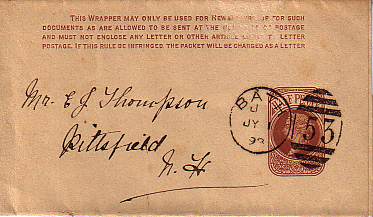 THIS WRAPPER MAY ONLY BE USED FOR NEWSPAPERS OR FOR SUCH
DOCUMENTS AS ARE ALLOWED TO BE SENT AT THE RATE OF POSTAGE
AND MUST NOT ENCLOSE ANY LETTER OR OTHER ARTICLE LETTER
POSTAGE. IF THIS RULE BE INFRINGED THE PACKET WILL BE CHARGED AS A LETTER
Mr. E J Thompson
Pittsfield
N. H
BATH
JY
53